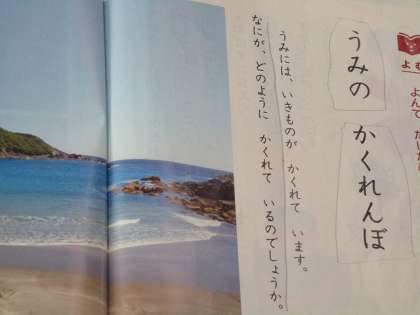 よむ
よんで たしか
うみの かくれんぼ
うみには、いきものが かくれて います。
なにが、どのように かくれて いるのでしょうか。